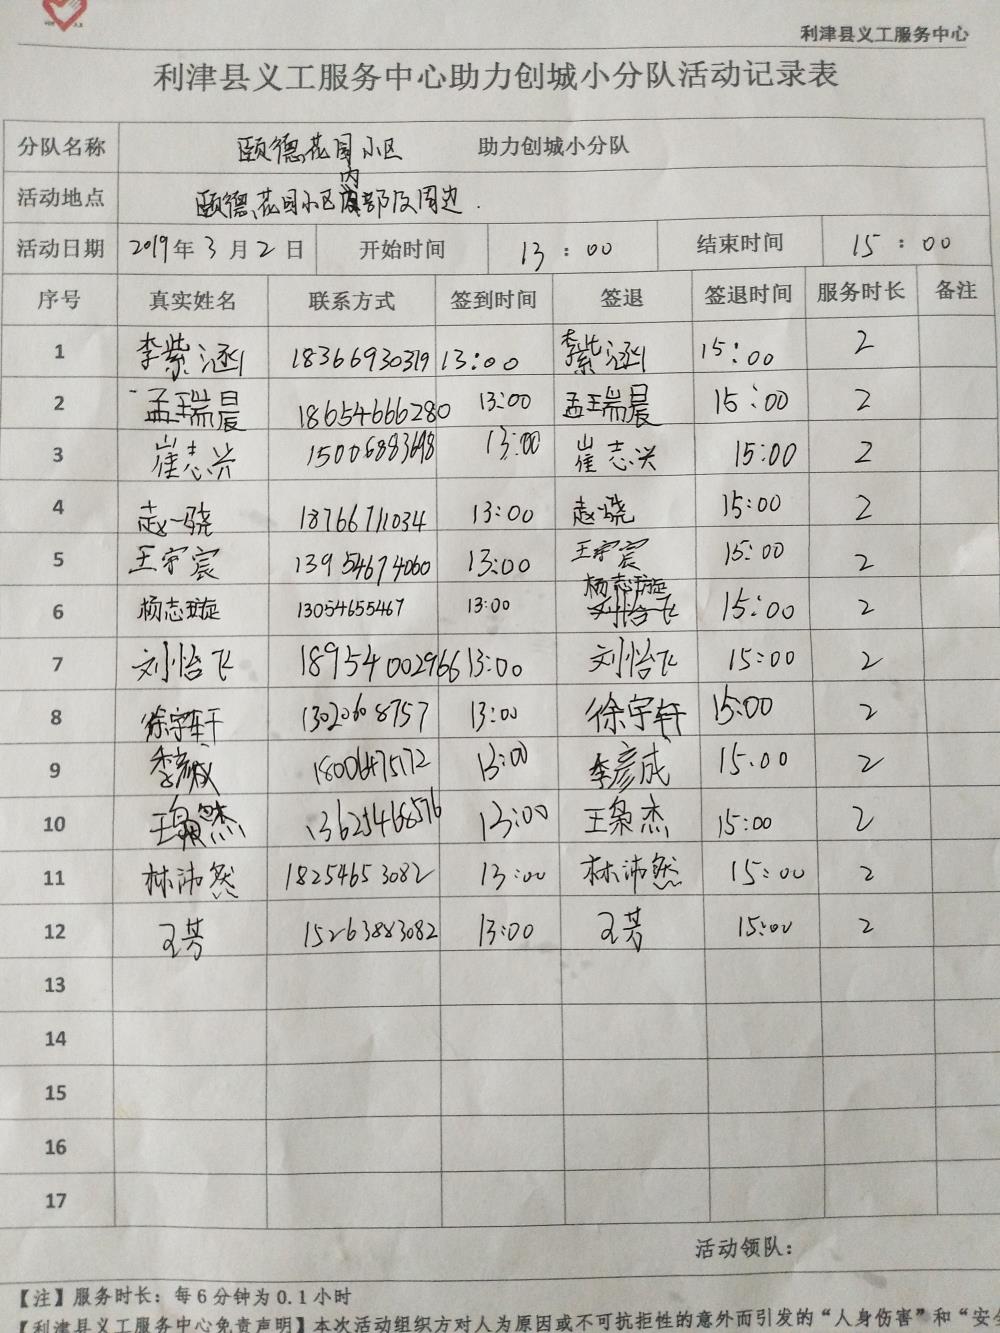 利津县义工服务中心
利津县义工服务中心助力创城小分队活动记录表
分队名称 颐德花园小区 助力创城小分队
活动地点 颐德花园小区内部及周边.
活动日期 2019年3月2日 开始时间 13:00 结束时间 15:00
序号 真实姓名 联系方式 签到时间 签退 签退时间 服务时长 备注
1 李紫涵 18366930319 13:00 李紫涵 15:00 2
2 孟瑞晨 18654666280 13:00 孟瑞晨 15:00 2
3 崔志兴 15006883698 13:00 崔志兴 15:00 2
4 赵一骁 18766711034 13:00 赵一骁 15:00 2
5 王宇宸 13954674060 13:00 王宇宸 15:00 2
6 杨志璇 13054655467 13:00 杨志璇 15:00 2
7 刘怡飞 18954002966 13:00 刘怡飞 15:00 2
8 徐宇轩 1302608757 13:00 徐宇轩 15:00 2
9 李彦成 18006475172 13:00 李彦成 15:00 2
10 王枭杰 13625468576 13:00 王枭杰 15:00 2
11 林沛然 18254653082 13:00 林沛然 15:00 2
12 王芳 15263883082 13:00 王芳 15:00 2
13
14
15
16
17
活动领队：
【注】服务时长：每6分钟为0.1小时
【利津县义工服务中心免责声明】本次活动组织方对人为原因或不可抗拒性的意外而引发的“人身伤害”和“安